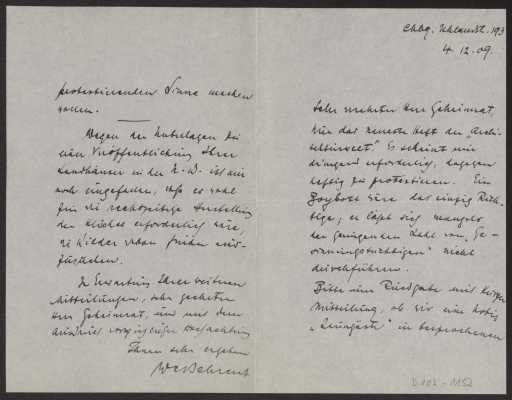 Chbg. Uhlandst. 193
4.12.09.
Sehr verehrter Herr Geheimrat,
hier das neueste Heft der „Archi-
tekturwelt“. Es scheint mir
dringend erforderlich, dagegen
heftig zu protestieren. Ein
Boykott wäre das einzig Rich-
tige; er läßt sich mangels
der genügenden Zahl von „Ge-
sinnungstüchtigen“ nicht
durchführen.
Bitte um Rückgabe mit kurzer
Mitteilung, ob wir eine Notiz
in besprochenem
protestierenden Sinne machen
wollen.
Wegen der Unterlagen zu
einer Veröffentlichung Ihrer
Landhäuser in der N.-W. ist mir
noch eingefallen, daß es wohl
für die rechtzeitige Herstellung
der Klichés erforderlich wäre,
die Bilder schon früher ein-
zufordern.
In Erwartung Ihrer weiteren
Mitteilungen, sehr geehrter
Herr Geheimrat, bin mit dem
Ausdruck vorzüglicher Hochachtung
Ihnen sehr ergeben
WCBehrendt
D 102 - 1152